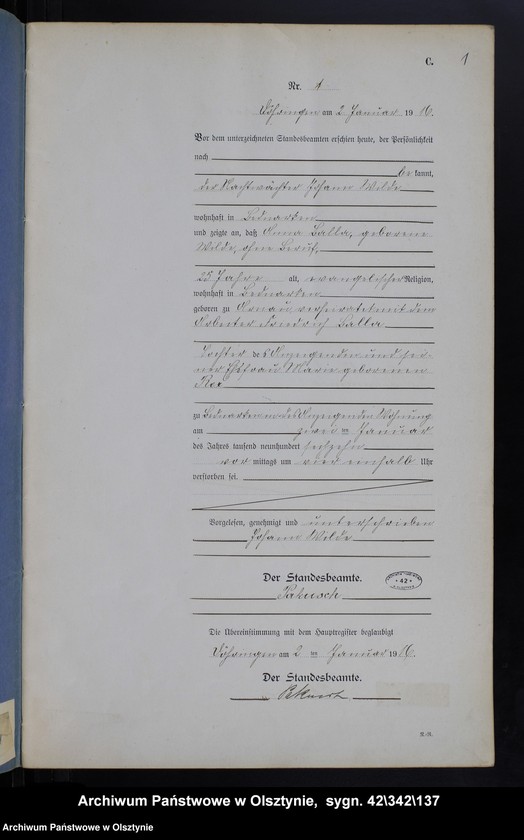 C. 1
Nr. 1
am 2 Januar 1916.
Vor dem unterzeichneten Standesbeamten erschien heute, der Persönlichkeit
nach
kannt,
der Nachtwächter Johann Wilde
wohnhaft in Bednarken
und zeigte an, daß Anna Salla, geborene
Wilde, ohne Beruf,
25 Jahre alt, evangelischer Religion,
wohnhaft in Bednarken
geboren zu verheiratet mit dem
Arbeiter Friedrich Salla
Tochter des Anzeigenden und sei-
ner Ehefrau Marie geborenen
zu Bednarken in des Anzeigenden Wohnung
am zwei ten Januar
des Jahres tausend neunhundert sechzehn
vor mittags um vier einhalb Uhr
verstorben sei.
Vorgelesen, genehmigt und unterschrieben
Johann Wilde
Der Standesbeamte.
42
Die Übereinstimmung mit dem Hauptregister beglaubigt
am 2 ten Januar 1916.
Der Standesbeamte.
Archiwum Państwowe w Olsztynie, sygn. 42\342\137
Archiwum Państwowe w Olsztynie